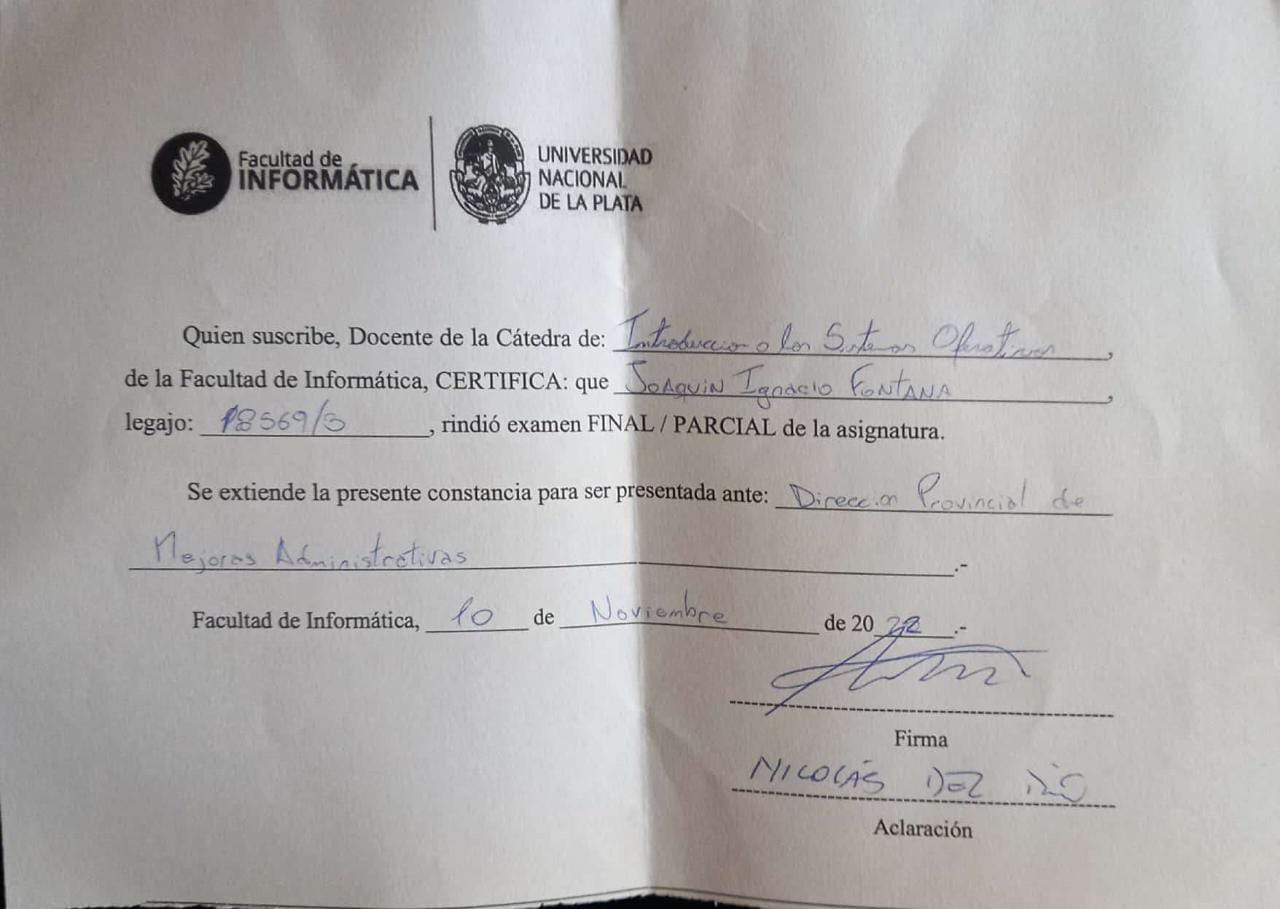 Facultad de
INFORMÁTICA
UNIVERSIDAD
NACIONAL
DE LA PLATA
Quien suscribe, Docente de la Cátedra de: Introduccion a los Sistemas Operativos,
de la Facultad de Informática, CERTIFICA: que Joaquin Ignacio Fontana,
legajo: 18569/3, rindió examen FINAL / PARCIAL de la asignatura.
Se extiende la presente constancia para ser presentada ante: Direccion Provincial de
Mejoras Administrativas.-
Facultad de Informática, 10 de Noviembre de 2022.-
Firma
NICOLÁS DEL RÍO
Aclaración